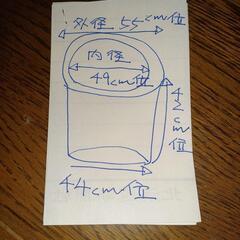 外径55cm位
内径
49cm位
42cm位
44cm位